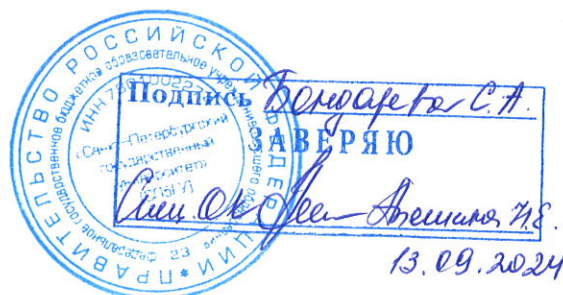 ПРАВИТЕЛЬСТВО РОССИЙСКОЙ ФЕДЕРАЦИИ *
федеральное государственное бюджетное образовательное учреждение высшего
«Санкт-Петербургский
государственный
университет»
(СПбГУ)
23
Подпись Бондарева С.А.
ЗАВЕРЯЮ
Спец. ОК
13.09.2024